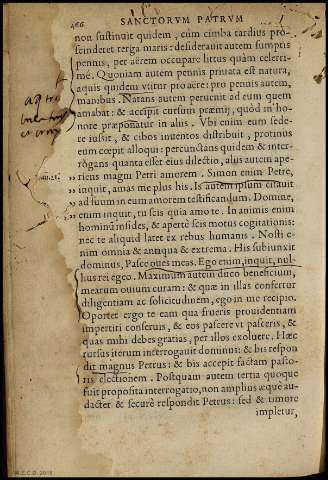 466
SANCTORVM PATRVM
non sustinuit quidem, cum cimba tardius pro-
scinderet terga maris: desiderauit autem sumptis
pennis, per aërem occupare littus quàm celerri-
mé. Quoniam autem pennis priuata est natura,
aquis quidem vtitur pro aere: pro pennis autem,
manibus. Natans autem peruenit ad eum quem
amabat: & accipit cursus præmij, quòd in ho-
nore præponatur in aliis. Vbi enim eum sede-
re iussit, & cibos inuentos distribuit, protinus
eum cœpit alloqui: percunctans quidem & inter-
rogans quanta esset eius dilectio, aliis autem ape-
riens magni Petri amorem. Simon enim Petre,
inquit, amas me plus his. Is autem ipsum citauit
ad suum in eum amorem testificandum. Domine,
enim inquit, tu scis quia amo te. In animis enim
hominũ insides, & apertè scis motus cogitationis:
nec te aliquid latet ex rebus humanis. Nosti e-
nim omnia & antiqua & extrema. His subiunxit
dominus, Pasce oues meas. Ego enim, inquit, nul-
lius rei egeo. Maximum autem duco beneficium,
mearum ouium curam: & quæ in illas confertur
diligentiam ac solicitudinem, ego in me recipio.
Oportet ergo te eam qua frueris prouidentiam
impertiri conseruis, & eos pascere vt pasceris, &
quas mihi debes gratias, per illos exoluere. Hæc
rursus iterum interrogauit dominus: & bis respon
dit magnus Petrus: & bis accepit factam pasto-
ris electionem. Postquam autem tertia quoque
fuit proposita interrogatio, non amplius æquè au-
dacter & securè respondit Petrus: sed & timore
impletur,